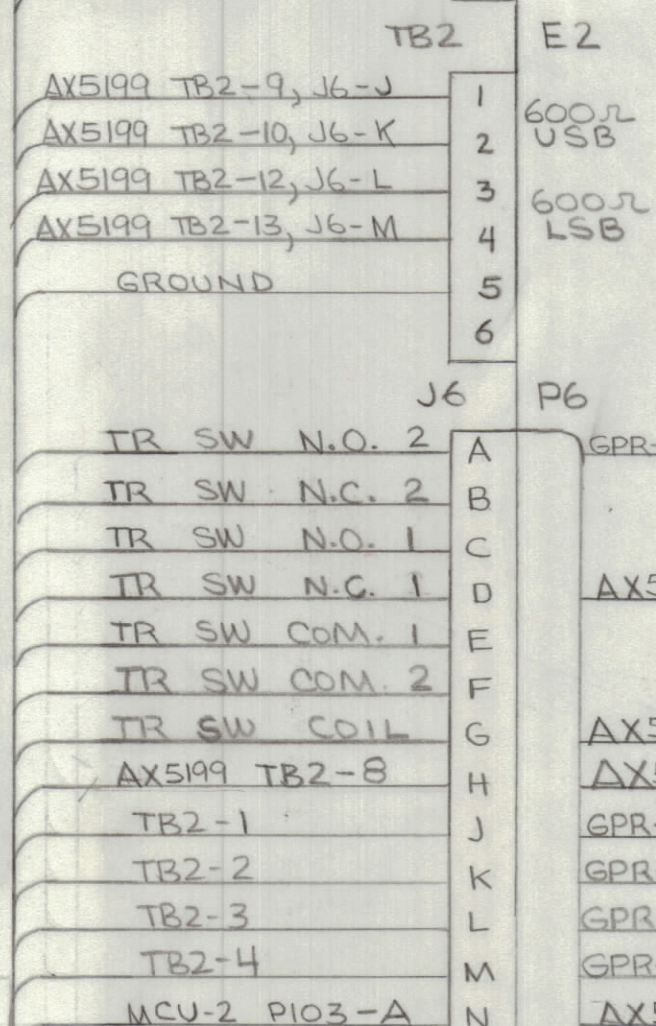 TB2 E2
AX5199 TB2-9, J6-J 1
600Ω
AX5199 TB2-10, J6-K 2
USB
AX5199 TB2-12, J6-L 3
600Ω
AX5199 TB2-13, J6-M 4
LSB
GROUND 5
6
J6 P6
TR SW N.O. 2 A GPR-
TR SW N.C. 2 B
TR SW N.O. 1 C
TR SW N.C. 1 D AX5
TR SW COM. 1 E
TR SW COM. 2 F
TR SW COIL G AX5
AX5199 TB2-8 H AX5
TB2-1 J GPR-
TB2-2 K GPR
TB2-3 L GPR
TB2-4 M GPR-
MCU-2 P103-A N AX5